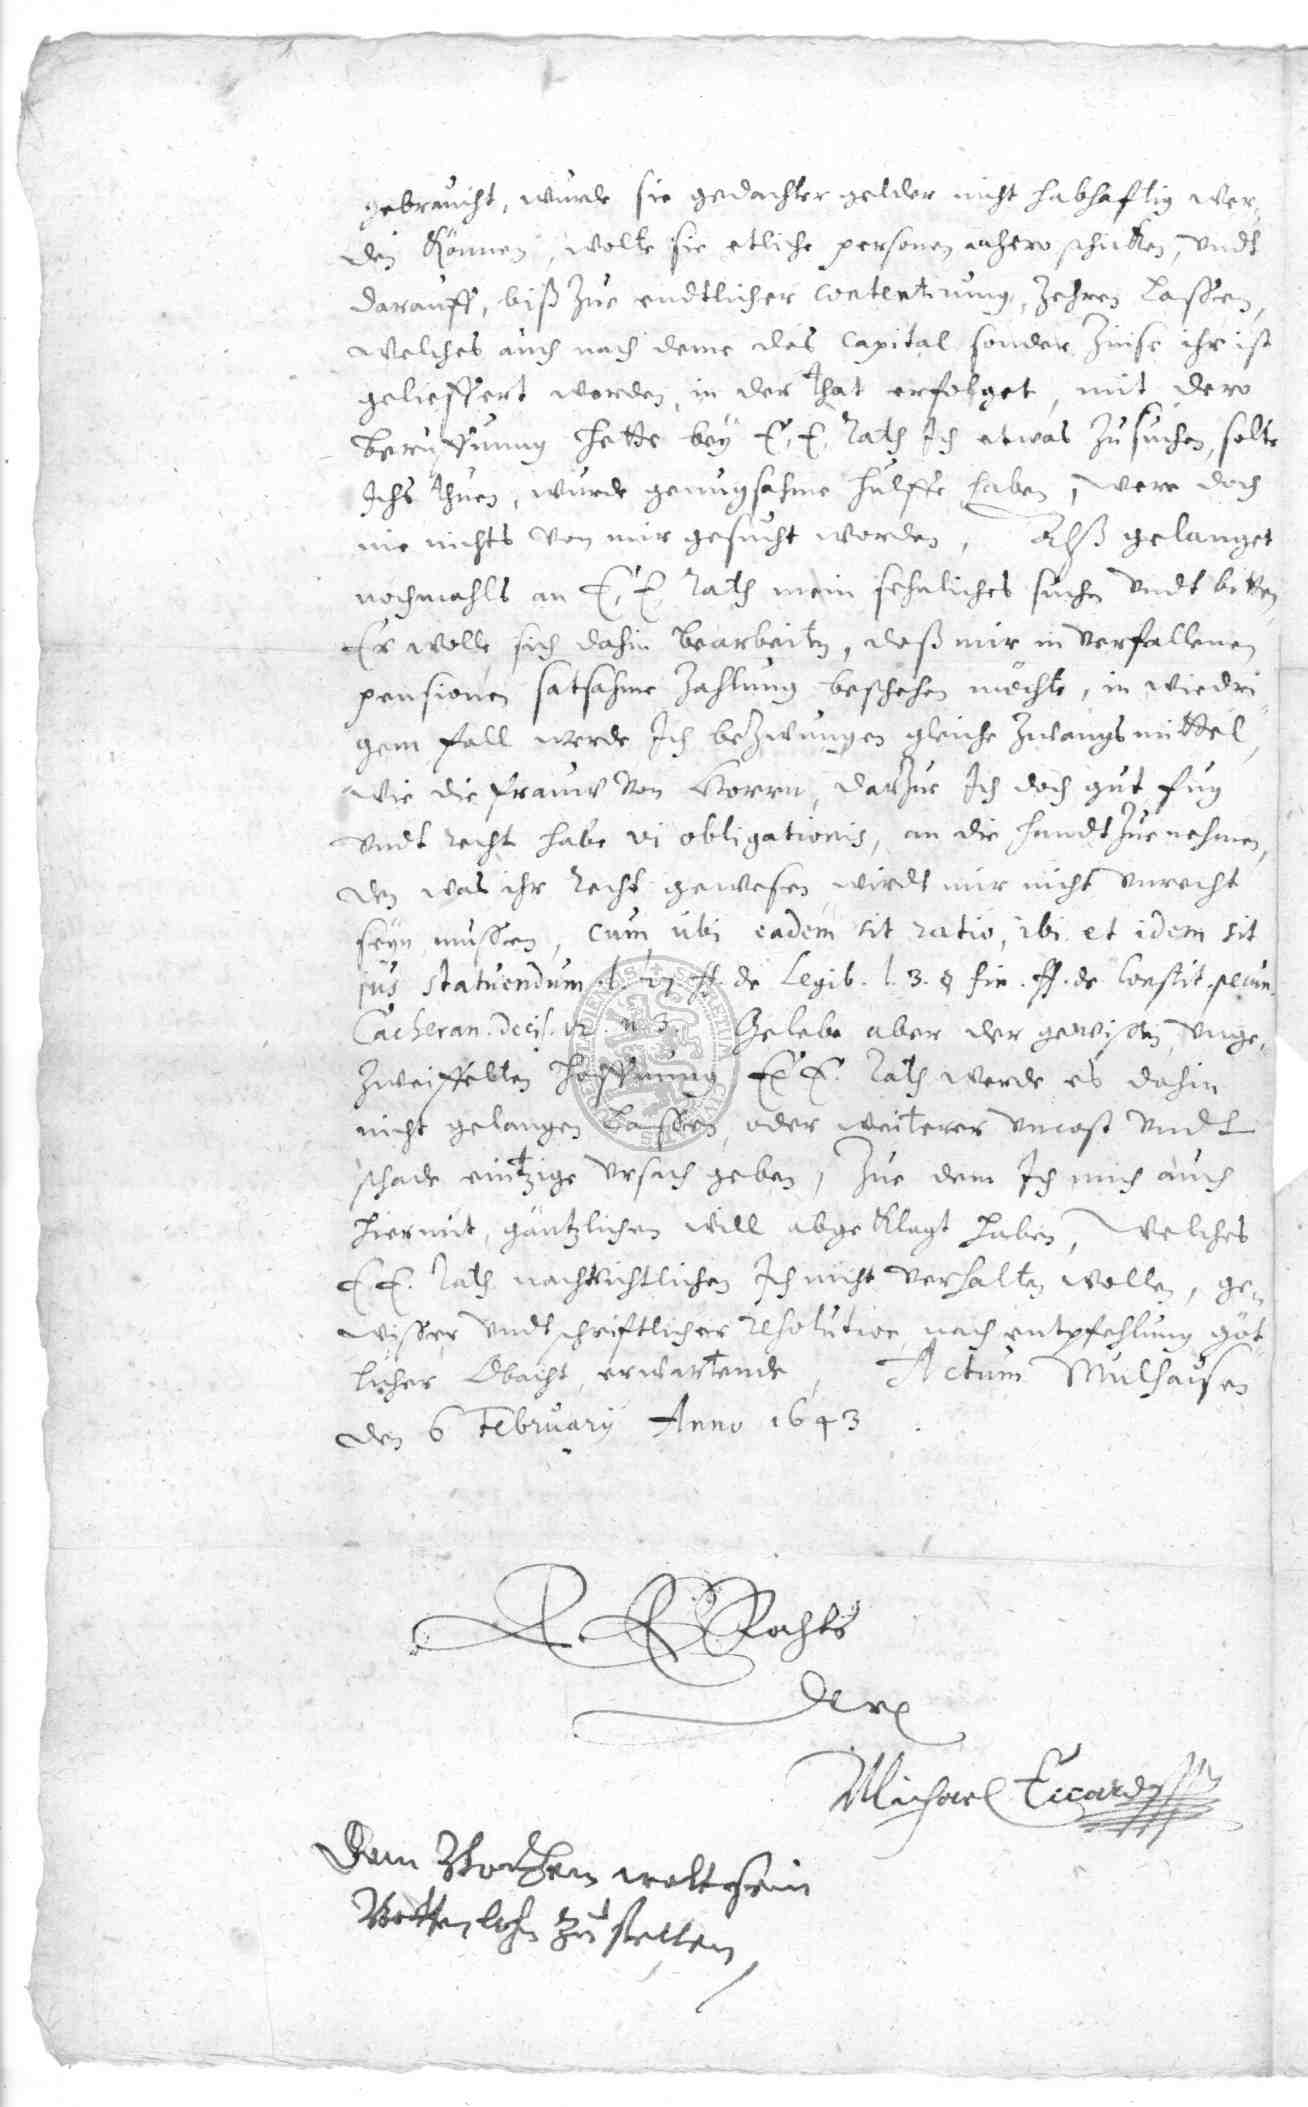 gebraucht, wurde sie gedachter gelder nicht habhafftig wer-
den können, wolte sie etliche personen anhero schicken, undt
darauff, biß zue endtlicher contentirung, zehren laßen,
welches auch nach deme das Capital sonder Zinse ihr ist
gelieffert worden, in der that erfolget, mit dero
beruffung hette bey E. E. Rath Ich etwas zu suchen, solte
Ichs thuen, wurde genugsahme hülffe haben, were doch
nie nichts von mir gesucht worden, Alß gelanget
nochmahls an E. E. Rath mein sehnliches suchen undt bitten
Er wolle sich dahin bearbeiten, daß mir in verfallenen
pensionen satsahme Zahlung beschehen möchte, in wiedri-
gem fall werde Ich bezwungen gleiche Zwangsmittel,
wie die frauw von, darzue Ich doch gut fug
undt recht habe vi obligationis, an die handt zue nehmen,
den was ihr recht gewesen wirdt mir nicht unrecht
seyn mußen, Cum ubi eadem sit ratio, ibi et idem sit
jus statuendum l. ff. de Legib. l. 3. § fin. ff. de Constit. pecun.
Cacheran. Decis. n. 3. Gelebe aber der gewissen, unge-
zweiffelten hoffnung E. E. Rath werde es dahin
nicht gelangen laßen, oder weiterer uncost undt
schade eintzige ursach geben, Zue dem Ich mich auch
hiermit, gäntzlichen will abgeklagt haben, Welches
E. E. Rath nachrichtlichen Ich nicht verhalten wollen, ge-
wisser undt schrifftlicher resolution nach entpfehlung göt-
licher Obacht erwartende, Actum Mulhausen
den 6 February Anno 1643.
E. E. Rahts
Michael Eccardt
Dem Botthen wolt sein
Botten lohn zu stellen,